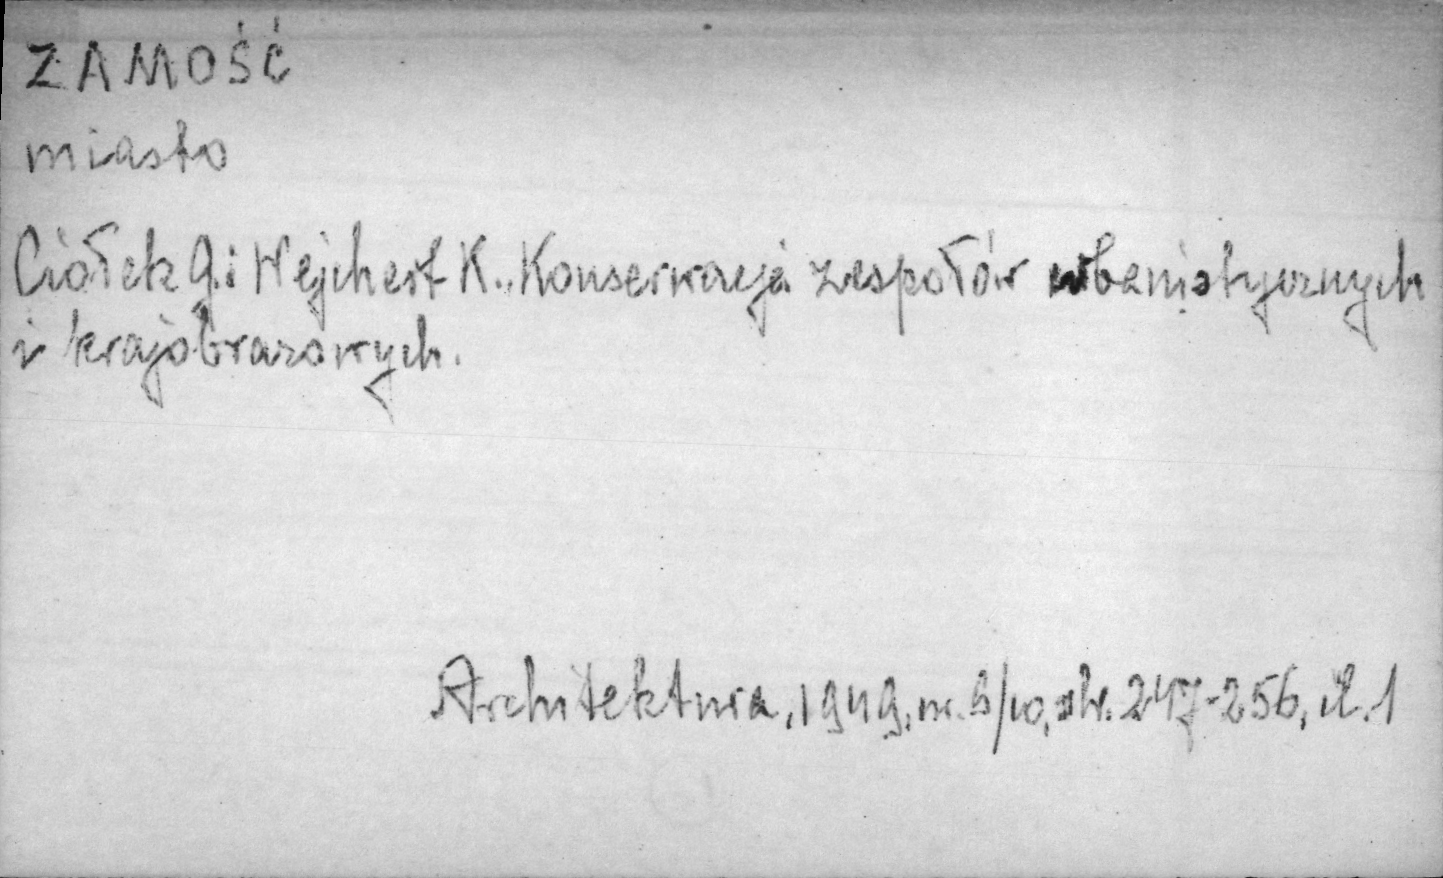 ZAMOŚĆ
miasto
Ciołek G. i Wejchert K., Konserwacja zespołów urbanistycznych
i krajobrazowych.
Architektura, 1949, nr. 9/10, str. 247-256, il. 1